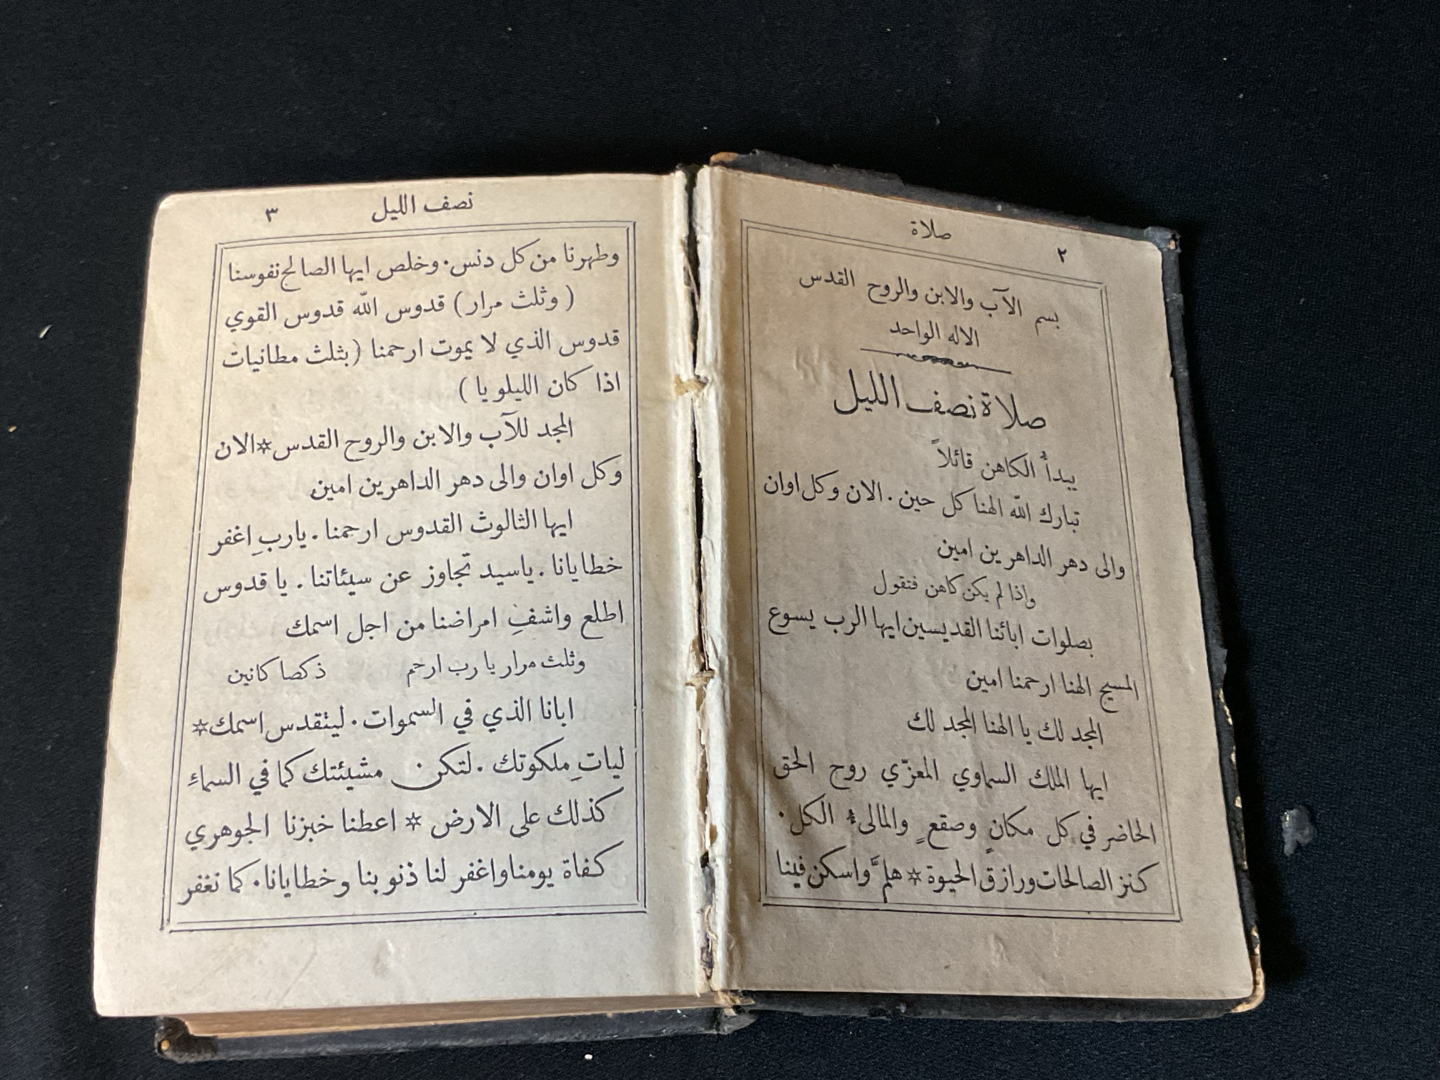 صلاة
٢
بسم الآب والابن والروح القدس
الاله الواحد
صلاة نصف الليل
يبدأُ الكاهن قائلاً
تبارك الله الهنا كل حين . الان وكل اوان
والى دهر الداهرين امين
واذا لم يكن كاهن فتقول
بصلوات ابائنا القديسين ايها الرب يسوع
المسيح الهنا ارحمنا امين
المجد لك يا الهنا المجد لك
ايها الملك السماوي المعزّي روح الحق
الحاضر في كل مكانٍ وصقعٍ والمالىء الكل .
كنز الصالحات ورازق الحيوة * هلمَّ واسكن فينا
نصف الليل
٣
وطهرنا من كل دنس . وخلص ايها الصالح نفوسنا
( وثلث مرار ) قدوس الله قدوس القوي
قدوس الذي لا يموت ارحمنا ( بثلث مطانيات
اذا كان الليلويا )
المجد للآب والابن والروح القدس * الان
وكل اوان والى دهر الداهرين امين
ايها الثالوث القدوس ارحمنا . يارب اغفر
خطايانا . ياسيد تجاوز عن سيئاتنا . يا قدوس
اطلع واشفِ امراضنا من اجل اسمك
وثلث مرار يا رب ارحم ذكصاكانين
ابانا الذي في السموات . ليتقدس اسمك *
لياتِ ملكوتك . لتكن مشيئتك كما في السماء
كذلك على الارض * اعطنا خبزنا الجوهري
كفاة يومنا واغفر لنا ذنوبنا وخطايانا . كما نغفر